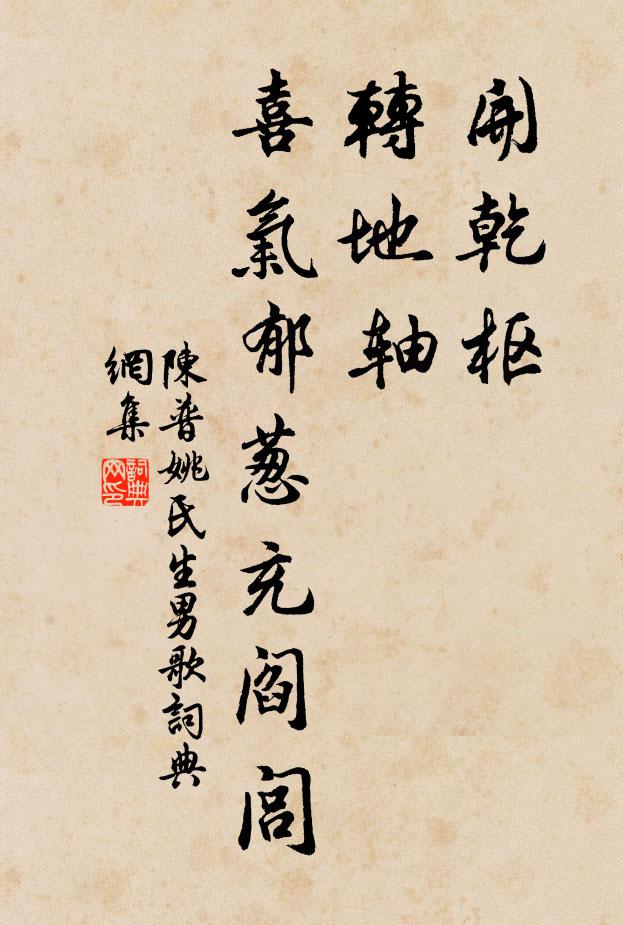 開乾枢
轉地軸
喜氣郁蔥充閻閭
陳普姚氏生男歌詞典
網集
詞典
网印